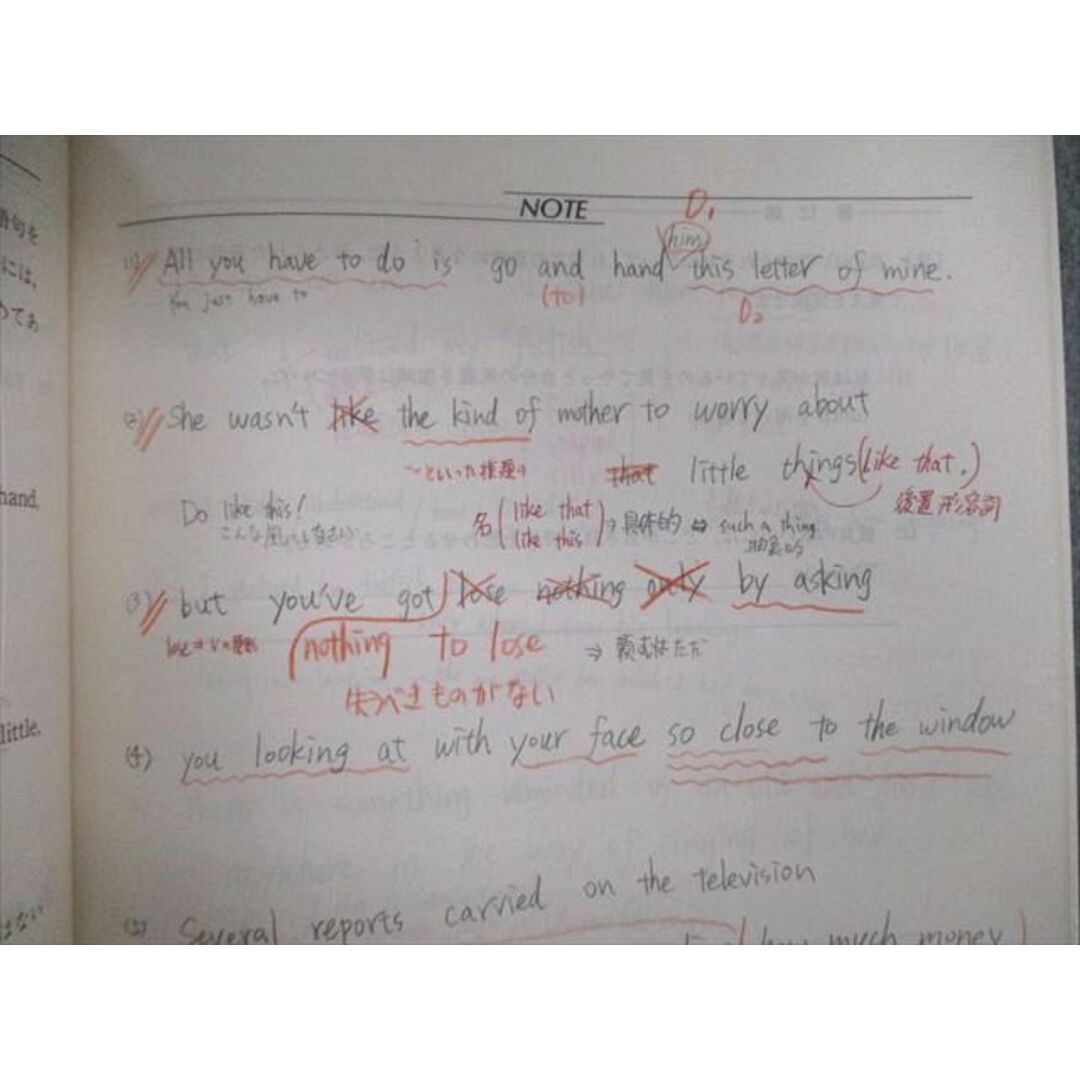 NOTE
O₁
him
(1) All you have to do is go and hand this letter of mine.
You just have to
(to)
O₂
(2) She wasn't like the kind of mother to worry about
〜といった
that little things (like that.)
後置形容詞
Do like this!
こんな風にしなさい
名 (like that like this) ⇒ 具体的 ⇔ such a thing
抽象的
(3) but you've got lose nothing only by asking
nothing to lose
⇒ 頼むはただ
失うべきものがない
(4) you looking at with your face so close to the window
(5) Several reports carried on the television
how much money
語句を
には、
hand,
little,
はない